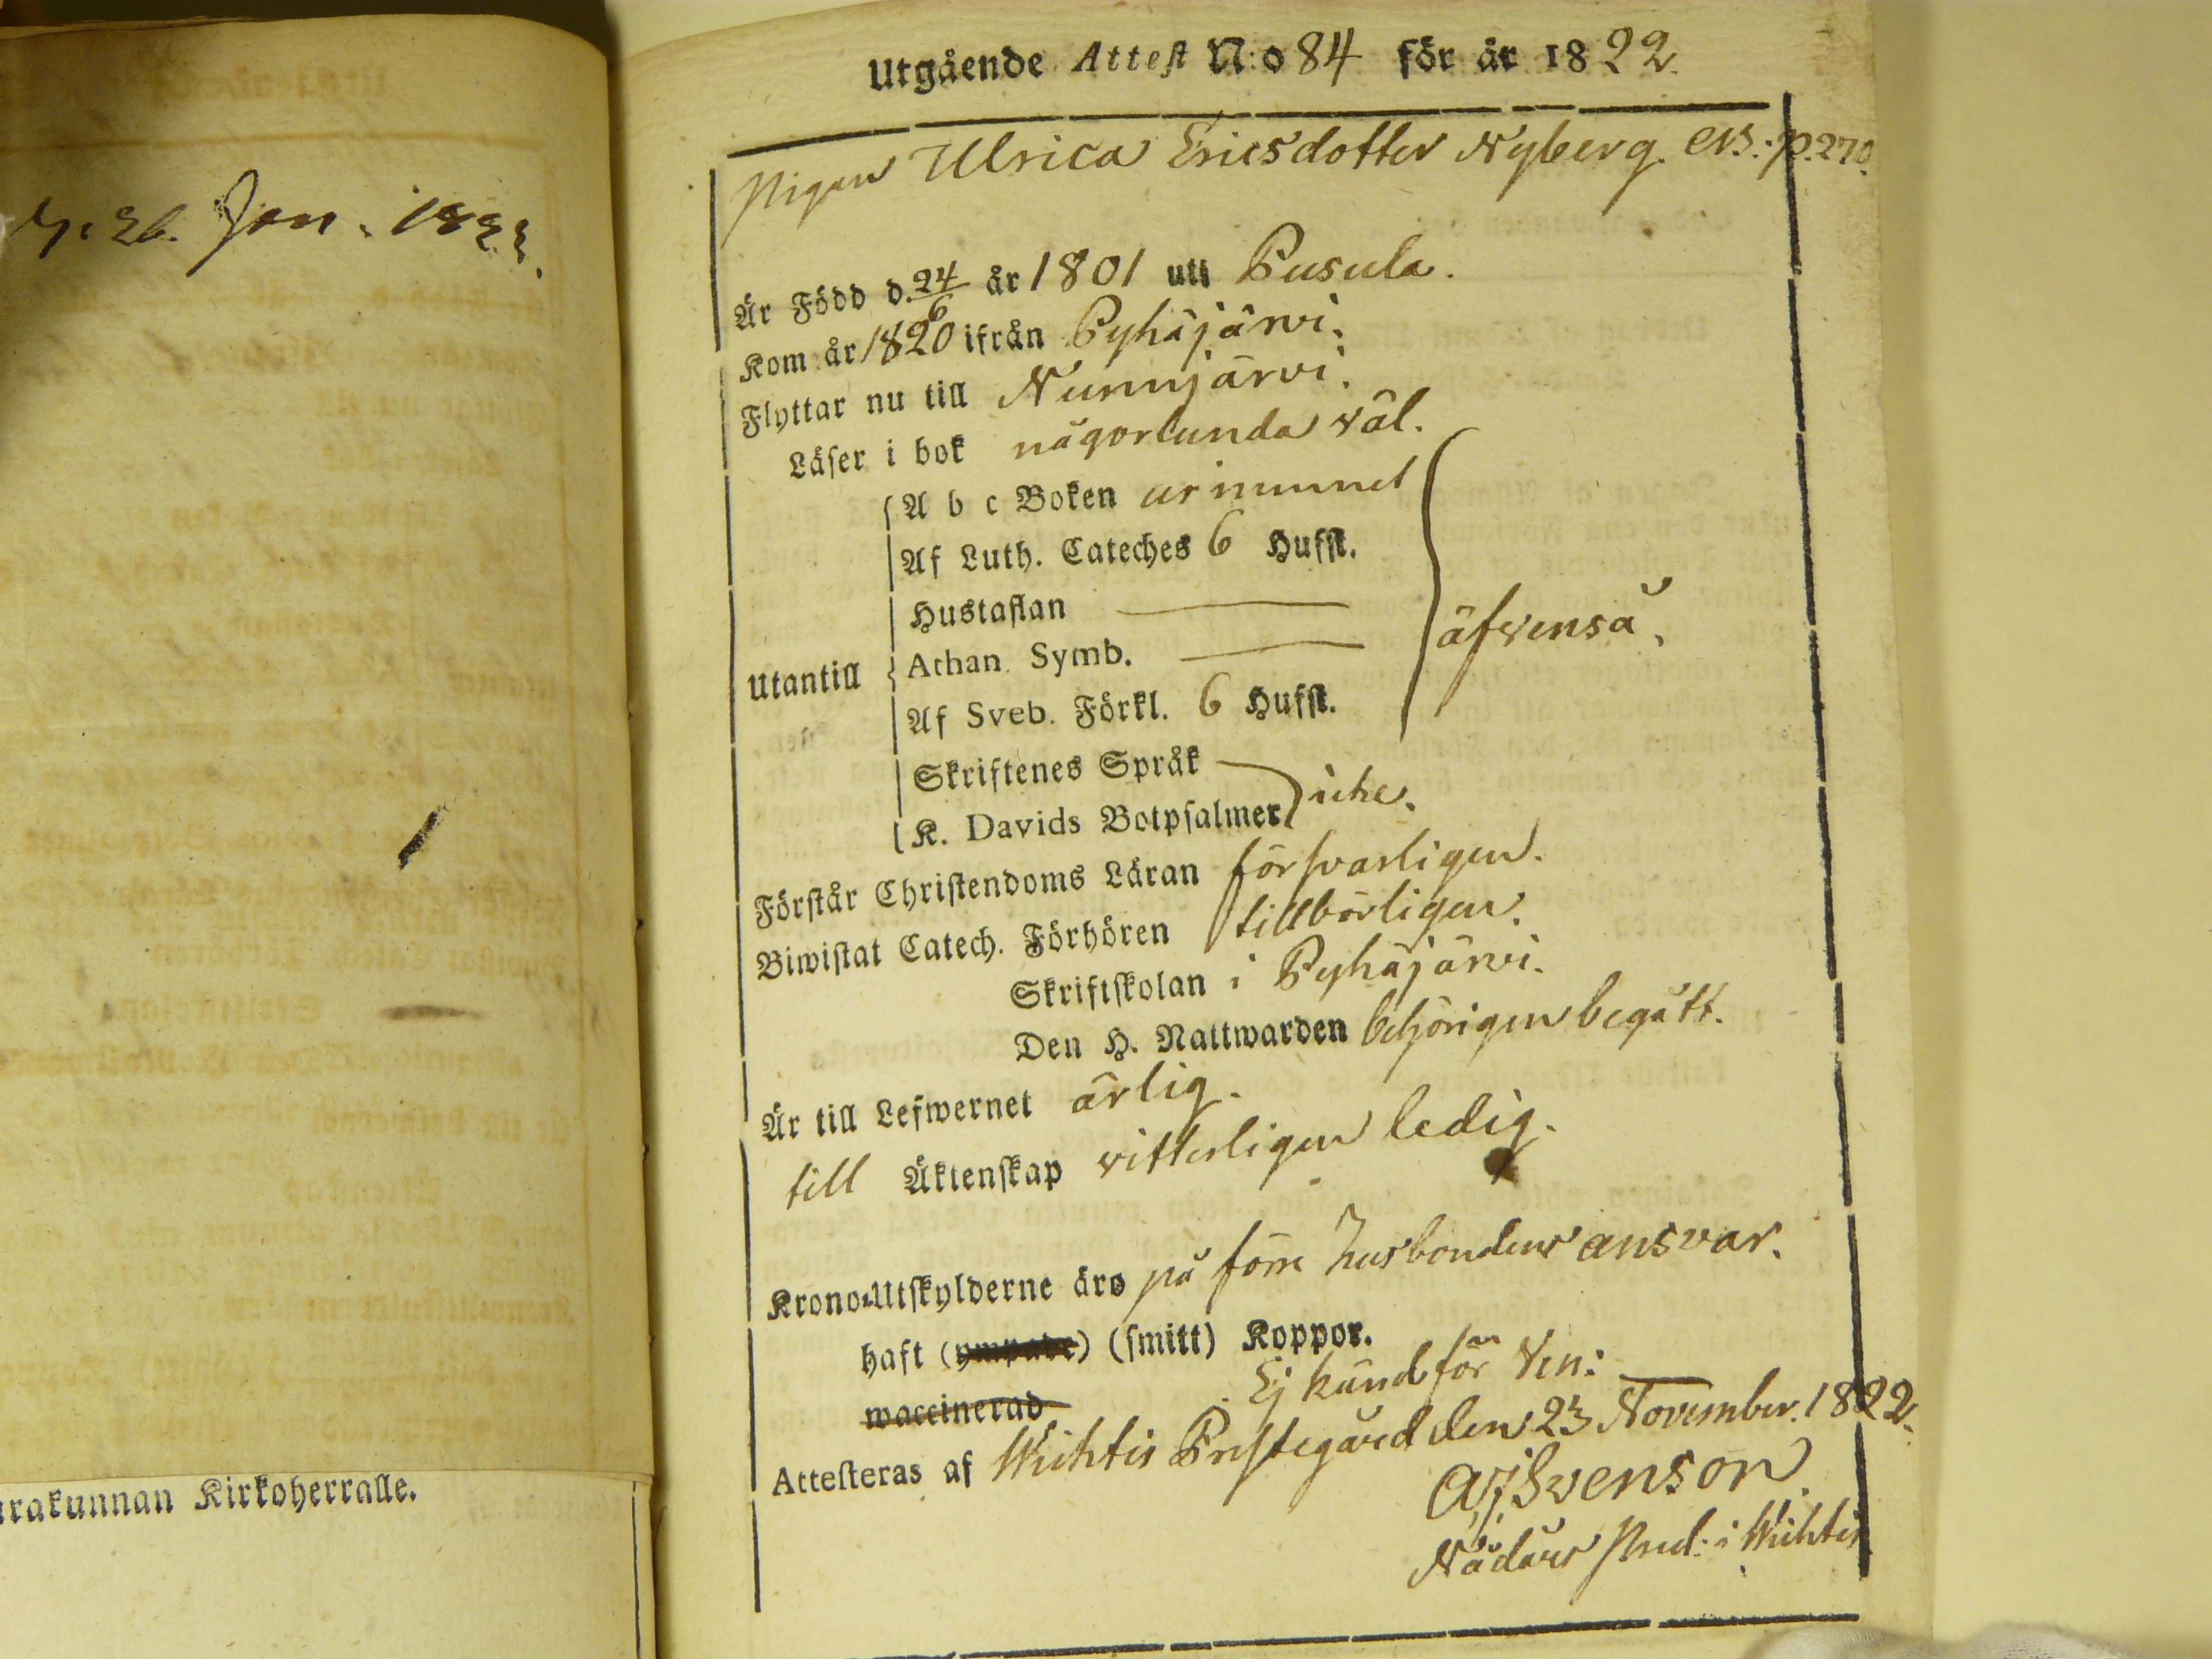 Jan. 182
arakunnan Kirkoherralle.
Utgående Attest N:o 84 för år 1822.
Pigan Ulrica Ericsdotter Nyberg. p. 270.
Är Född d. 24/6 år 1801 uti Pusula.
Kom år 1820 ifrån Pyhäjärvi.
Flyttar nu till Nummjärvi.
Läser i bok någorlunda väl.
A b c Boken ur minnet
Af Luth. Cateches 6 Hufst.
Hustaflan —
Utantill Athan. Symb. — äfvenså,
Af Sveb. Förkl. 6 Hufst.
Skriftenes Språk
K. Davids Botpsalmer icke.
Förstår Christendoms Läran försvarligen.
Biwistat Catech. Förhören tillbörligen.
Skriftskolan i Pyhäjärvi.
Den H. Nattwarden behörigen begått.
Är till Lefwernet ärlig.
till Äktenskap vitterligen ledig.
Krono-Utskylderne äro på förre husbondens ansvar.
haft (ympade) (smitt) Koppor.
waccinerad Ej känd för Ven:
Attesteras af Wichtis Prestegård den 23 November. 1822.
Svenson.
Nådårs Pred: i Wichtis